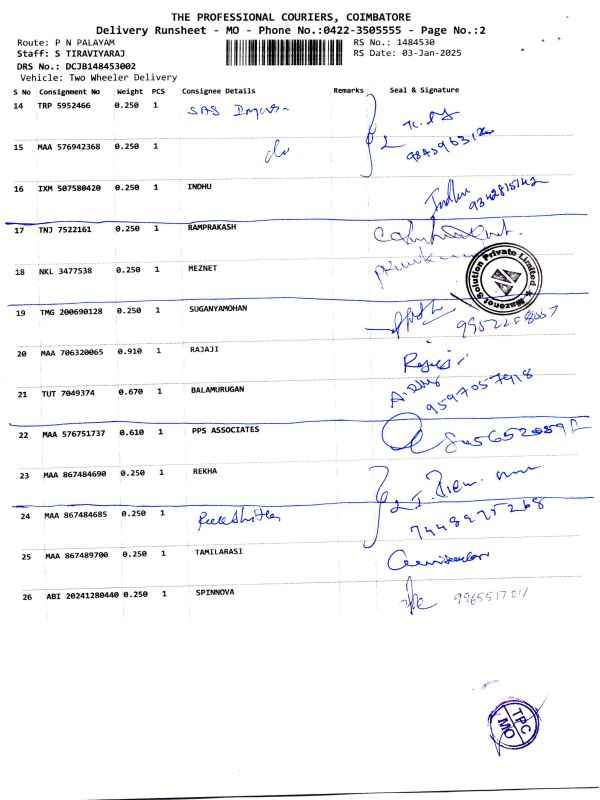 THE PROFESSIONAL COURIERS, COIMBATORE
Delivery Runsheet - MO - Phone No.:0422-3505555 - Page No.:2
Route: P N PALAYAM RS No.: 1484530
Staff: S TIRAVIYARAJ RS Date: 03-Jan-2025
DRS No.: DCJB148453002
Vehicle: Two Wheeler Delivery
S No Consignment No Weight PCS Consignee Details Remarks Seal & Signature
14 TRP 5952466 0.250 1 SAS
15 MAA 576942368 0.250 1 do
16 IXM 507580420 0.250 1 INDHU Indhu
17 TNJ 7522161 0.250 1 RAMPRAKASH
18 NKL 3477538 0.250 1 MEZNET
Solution Private Limited
19 TMG 200690128 0.250 1 SUGANYAMOHAN
20 MAA 706320065 0.910 1 RAJAJI
21 TUT 7049374 0.670 1 BALAMURUGAN 9597057918
22 MAA 576751737 0.610 1 PPS ASSOCIATES
23 MAA 867484690 0.250 1 REKHA
24 MAA 867484685 0.250 1
25 MAA 867489700 0.250 1 TAMILARASI
26 ABI 20241280440 0.250 1 SPINNOVA
TPC
MO